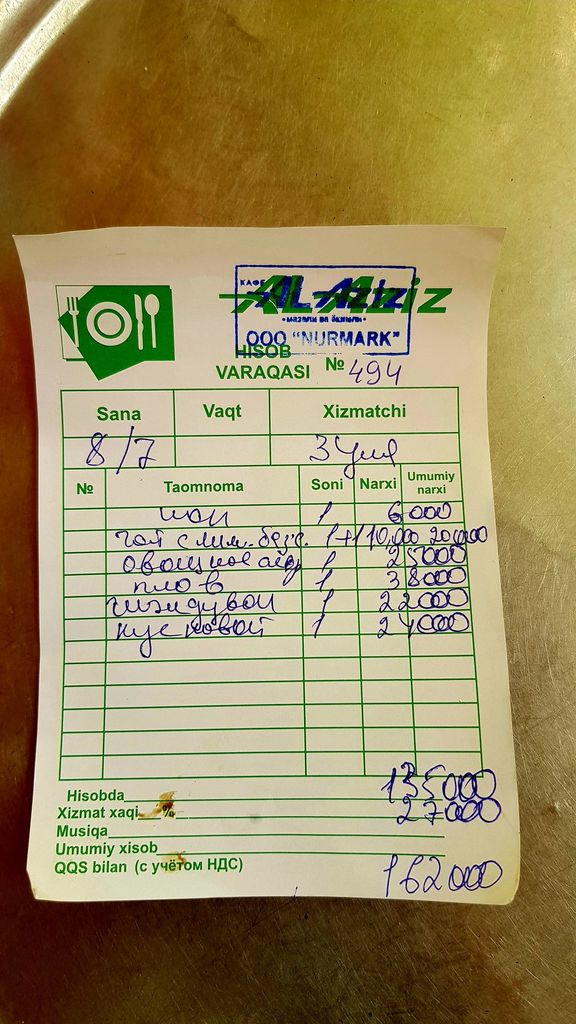 AL-Aziz
КАФЕ AL AZIZ
• мазали ва ёқимли •
ООО "NURMARK"
HISOB
VARAQASI № 494
Sana Vaqt Xizmatchi
8/7 Зуля
№ Taomnoma Soni Narxi Umumiy narxi
нон 1 6000
чай с лим. без с. 1+1 10,000 20000
овощное 1 25000
плов 1 38000
гиждувон 1 22000
кусковой 1 24000
Hisobda 135000
Xizmat xaqi % 27000
Musiqa
Umumiy xisob
QQS bilan (с учётом НДС) 162000